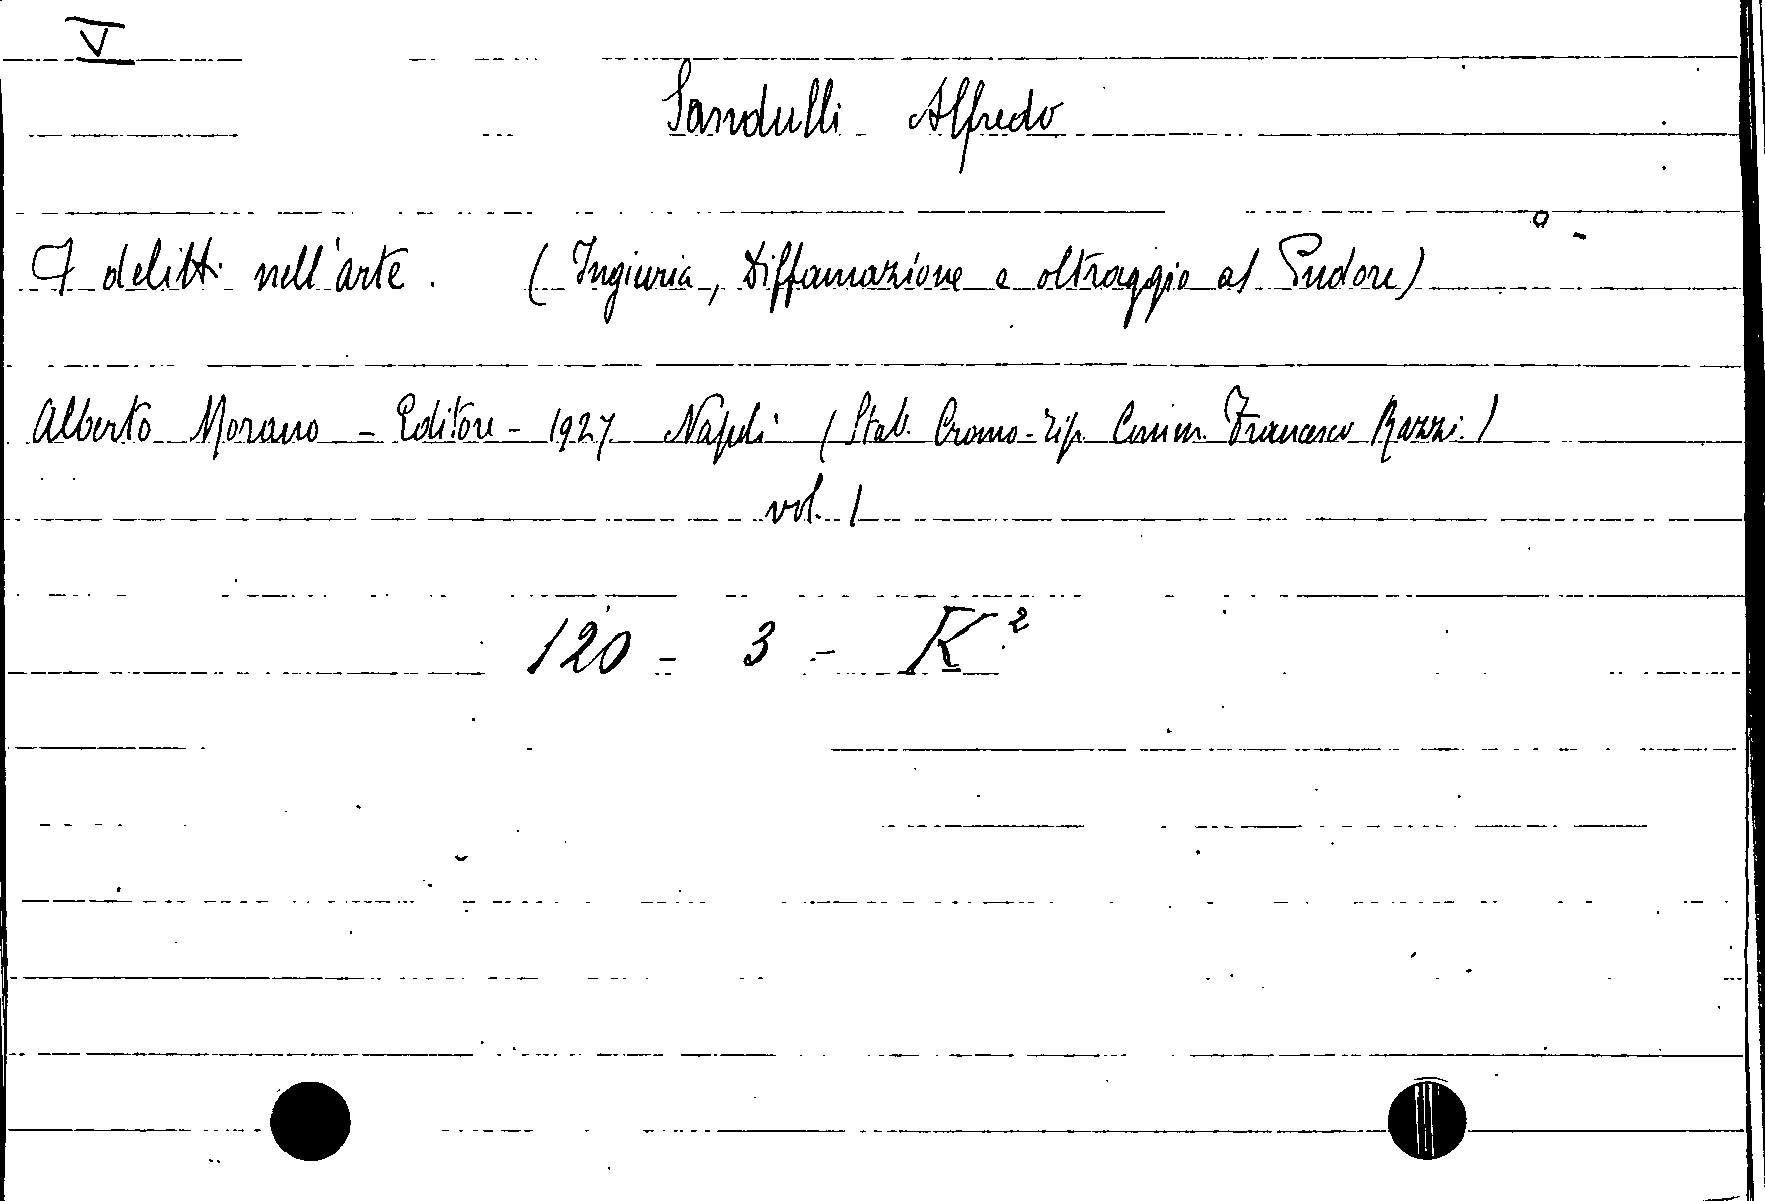 V
Sandulli Alfredo
I delitti nell'arte. (Ingiuria, Diffamazione e oltraggio al Pudore)
Alberto Morano - Editore - 1927 Napoli (Stab. Cromo-Tip. Comm. Francesco Razzi.)
vol. 1
120 - 3 - K²